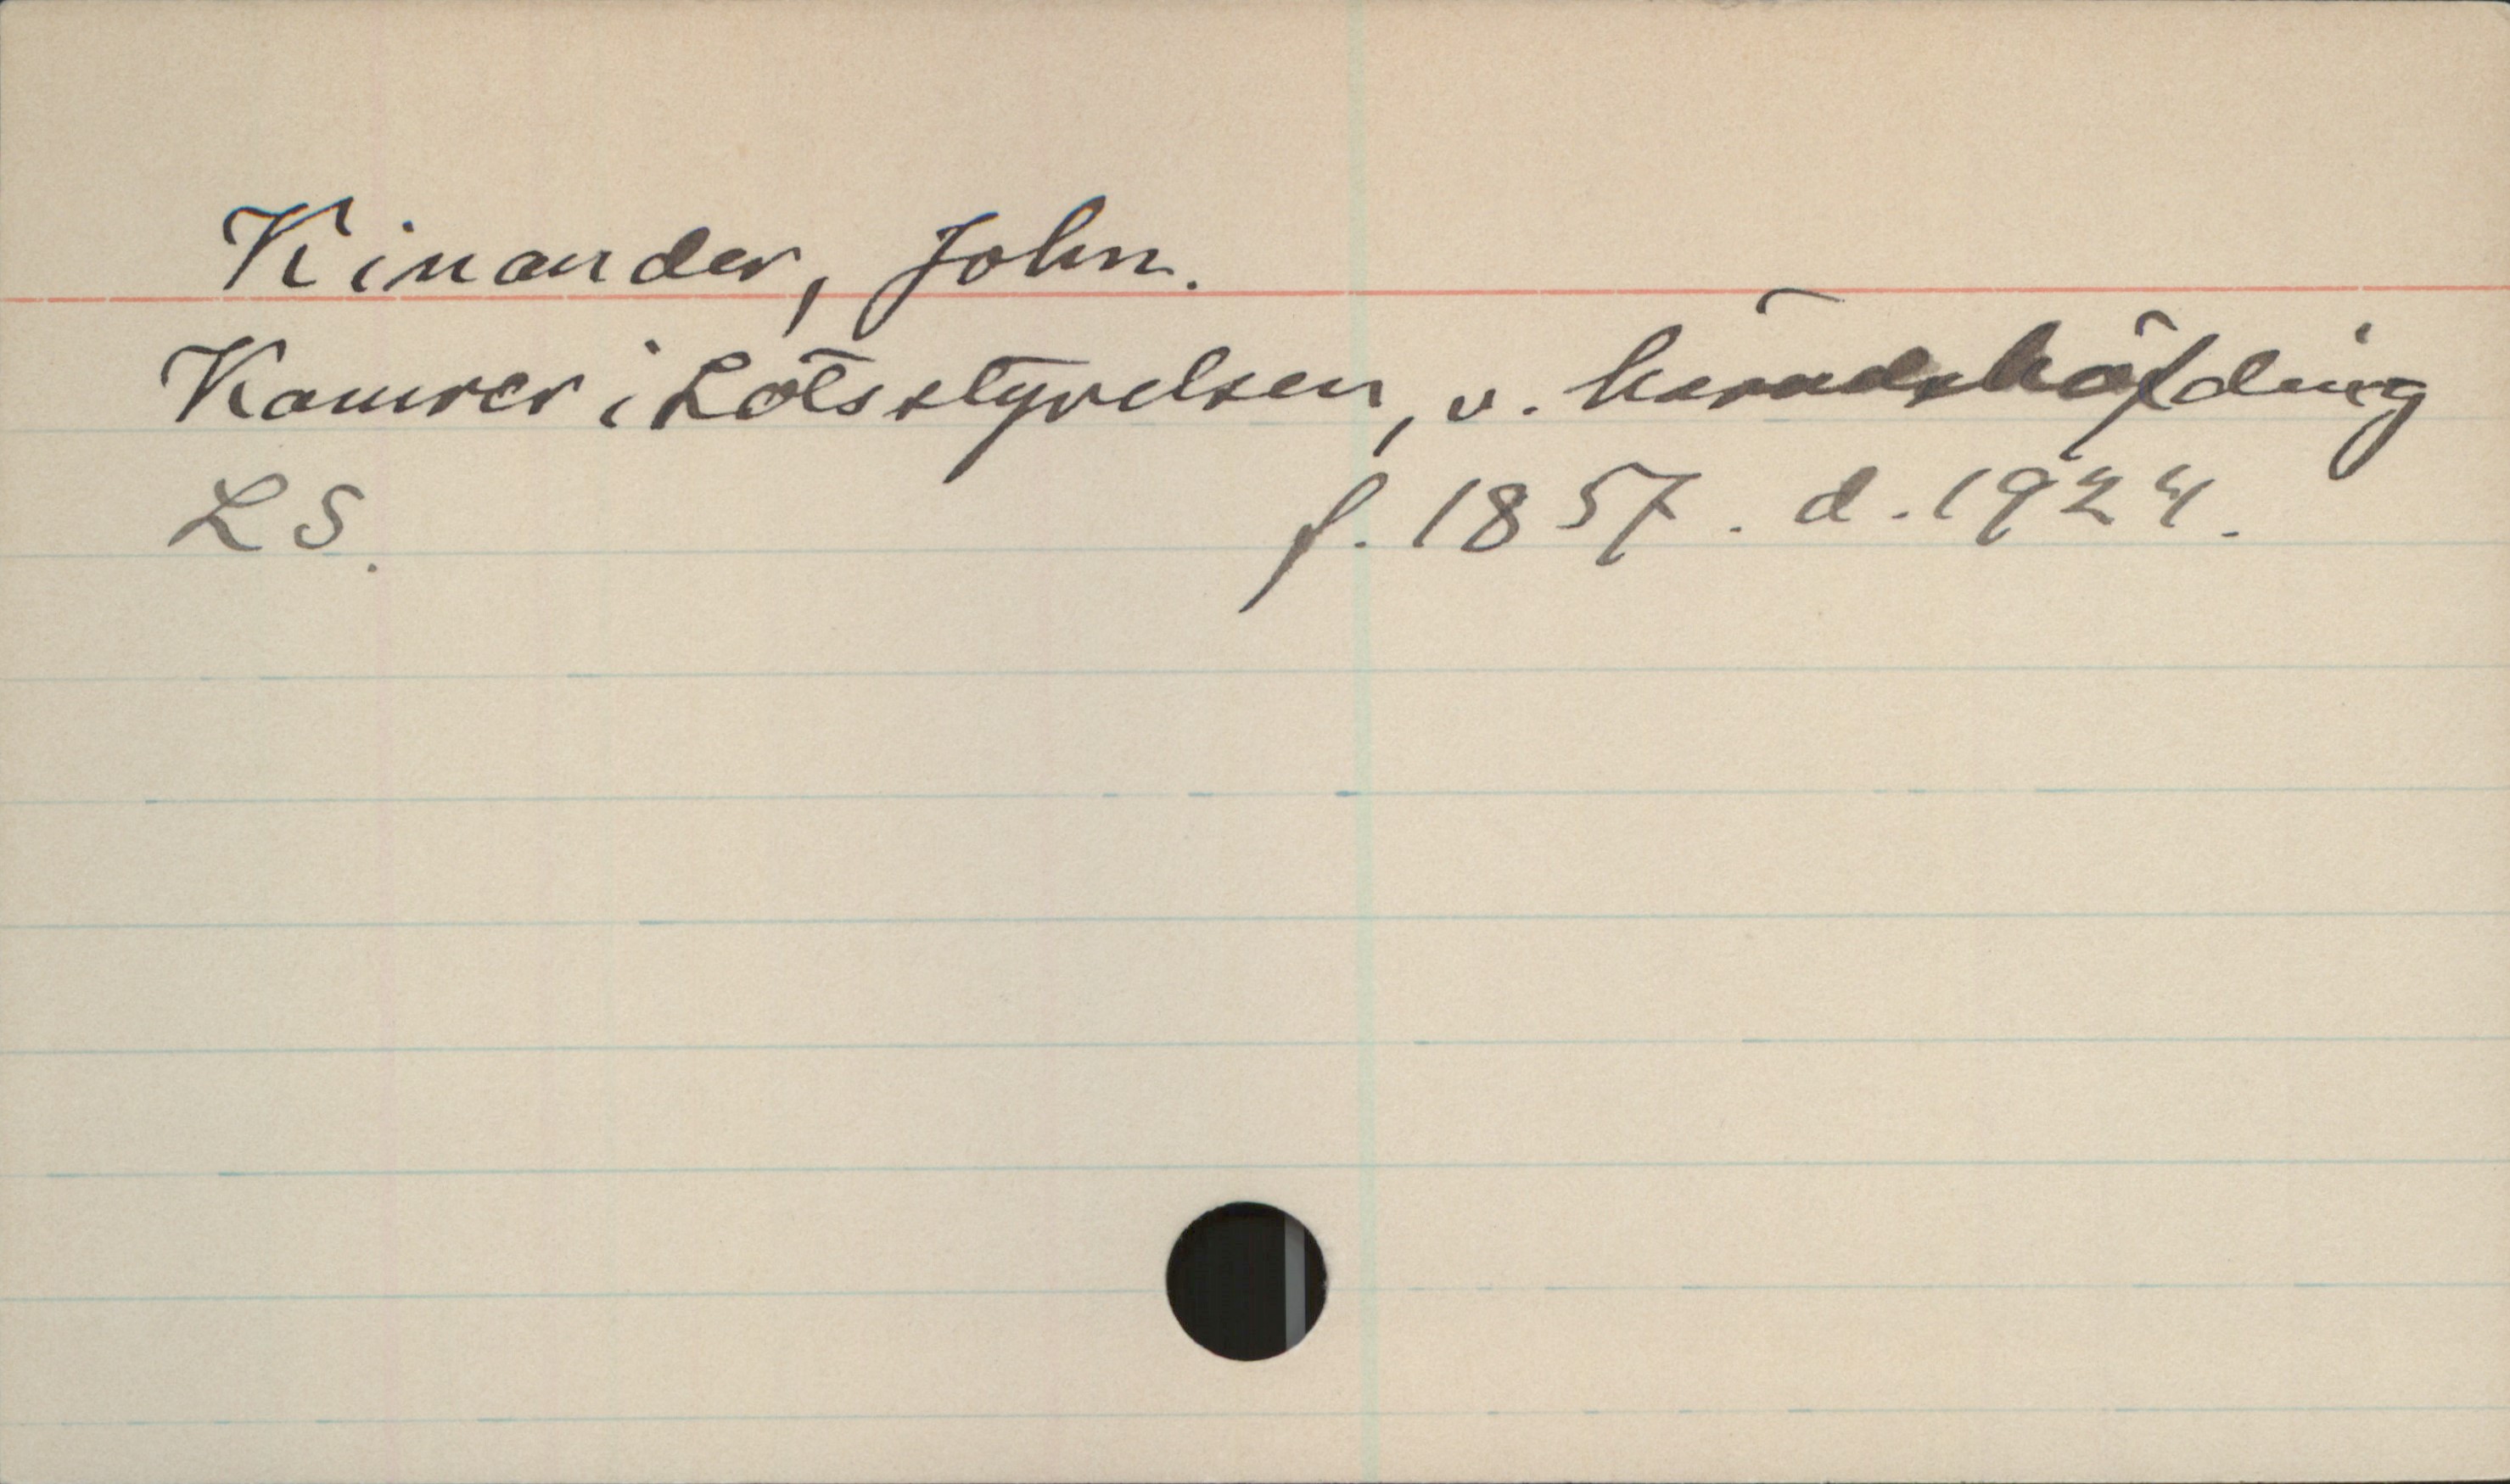 Kinander, John.
Kamrer i Lotsstyrelsen, v. häradshöfding
LS. f. 1857. d. 1924.